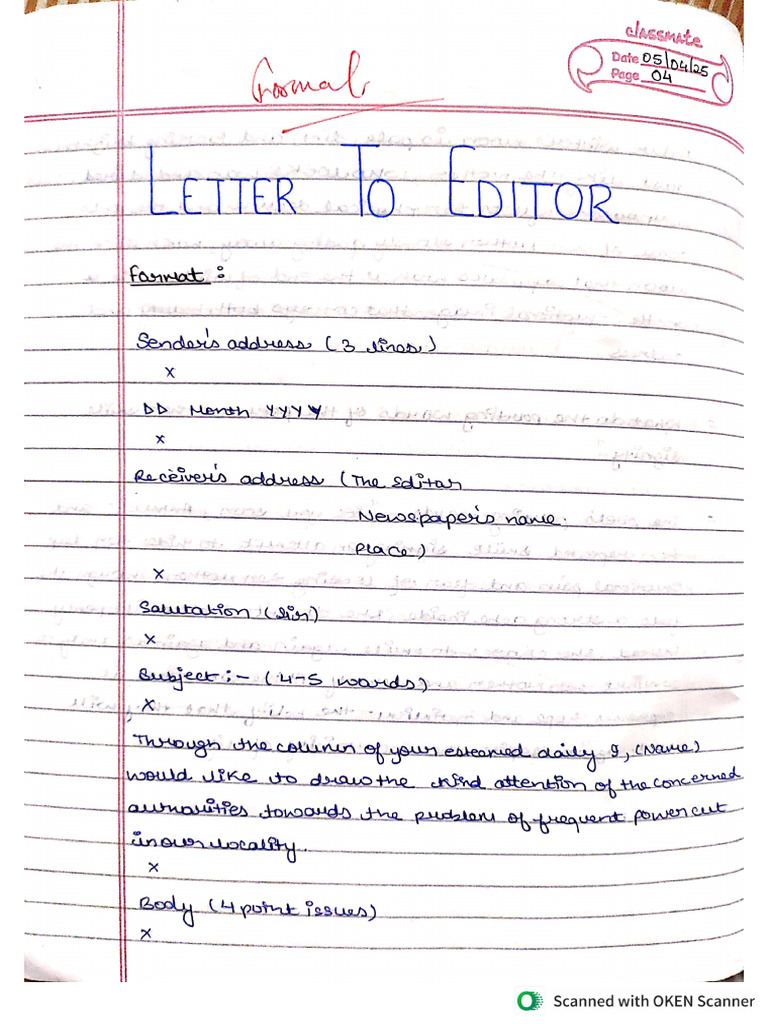 classmate
Date 05/04/25
Page 04
Formal
LETTER TO EDITOR
Format :
Sender's address (3 lines)
x
DD Month YYYY
x
Receiver's address (The Editor
Newspaper's name.
Place)
x
Salutation (Sir)
x
Subject :- (4-5 words)
x
Through the column of your esteamed daily I, (Name)
would like to draw the kind attention of the concerned
authorities towards the problem of frequent power cut
in our locality.
x
Body (4 point issues)
x
Scanned with OKEN Scanner